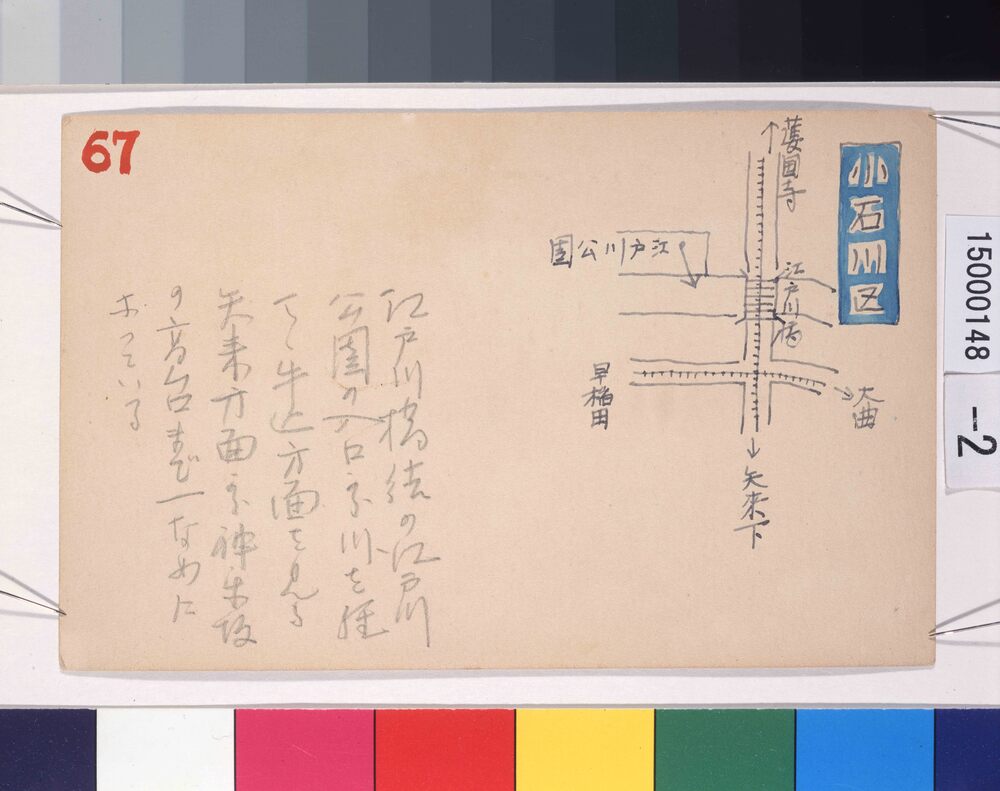 67
小石川区
↑護国寺
江戸川公園
江戸川橋
早稲田
→大曲
↓矢来下
江戸川橋続の江戸川
公園の入口から川を経
て牛込方面を見る
矢来方面から神楽坂
の高台まで一なめに
なっている
15000148
-2